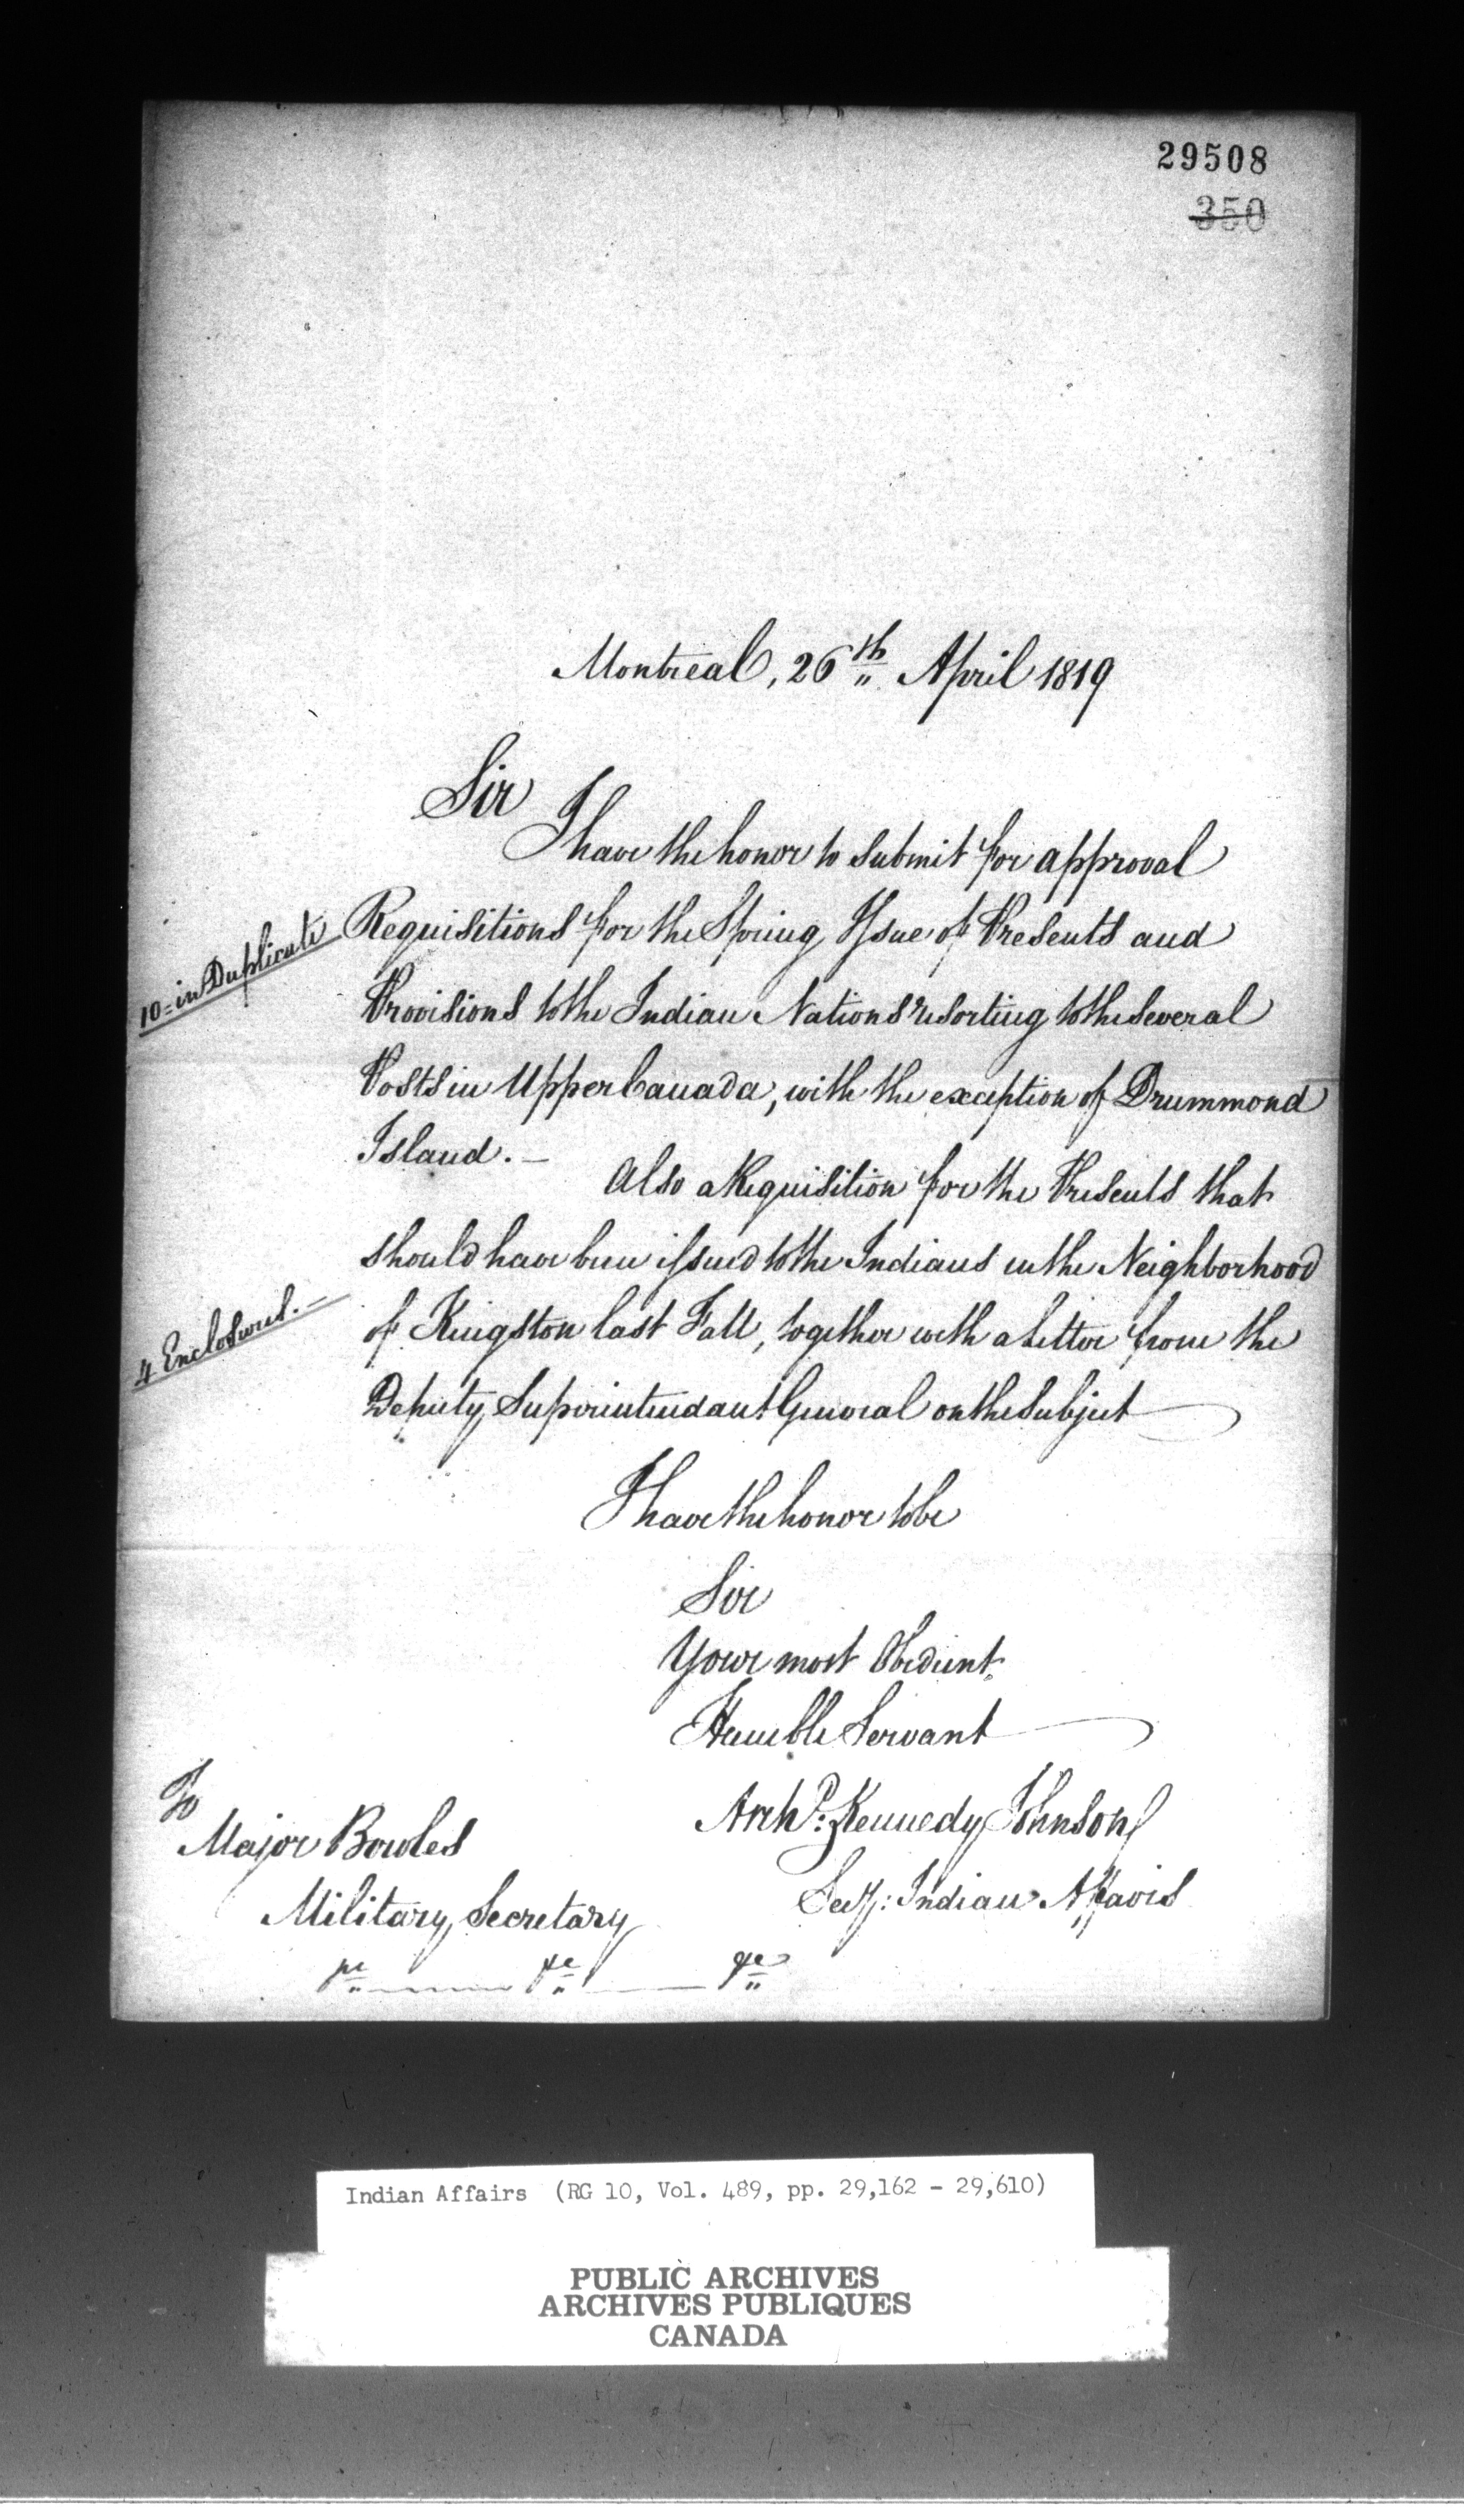 29508
350
Montreal, 26th April 1819
Sir
I have the honor to submit for approval
10 = in Duplicate
Requisitions for the Spring Issue of Presents and
Provisions to the Indian Nations resorting to the several
Posts in Upper Canada, with the exception of Drummond
Island. —
Also a Requisition for the Presents that
should have been issued to the Indians in the Neighborhood
4 Enclosures. —
of Kingston last Fall, together with a Letter from the
Deputy Superintendant General on the Subject
I have the honor to be
Sir
Your most Obedient
Humble Servant
Archd: Kennedy Johnson
Secy: Indian Affairs
To
Major Bowles
Military Secretary
&c &c &c
Indian Affairs (RG 10, Vol. 489, pp. 29,162 - 29,610)
PUBLIC ARCHIVES
ARCHIVES PUBLIQUES
CANADA